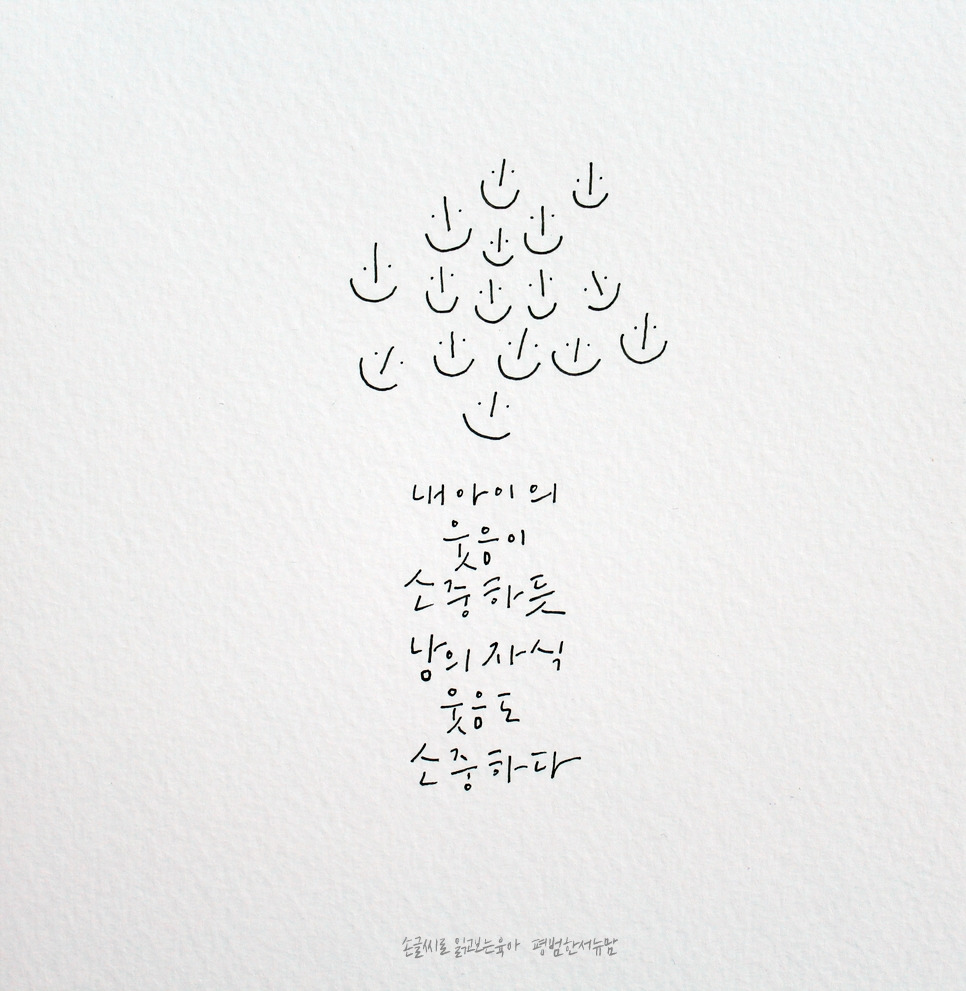 내 아이의
웃음이
소중하듯
남의 자식
웃음도
소중하다
손글씨로 읽고보는육아 평범한서뉴맘